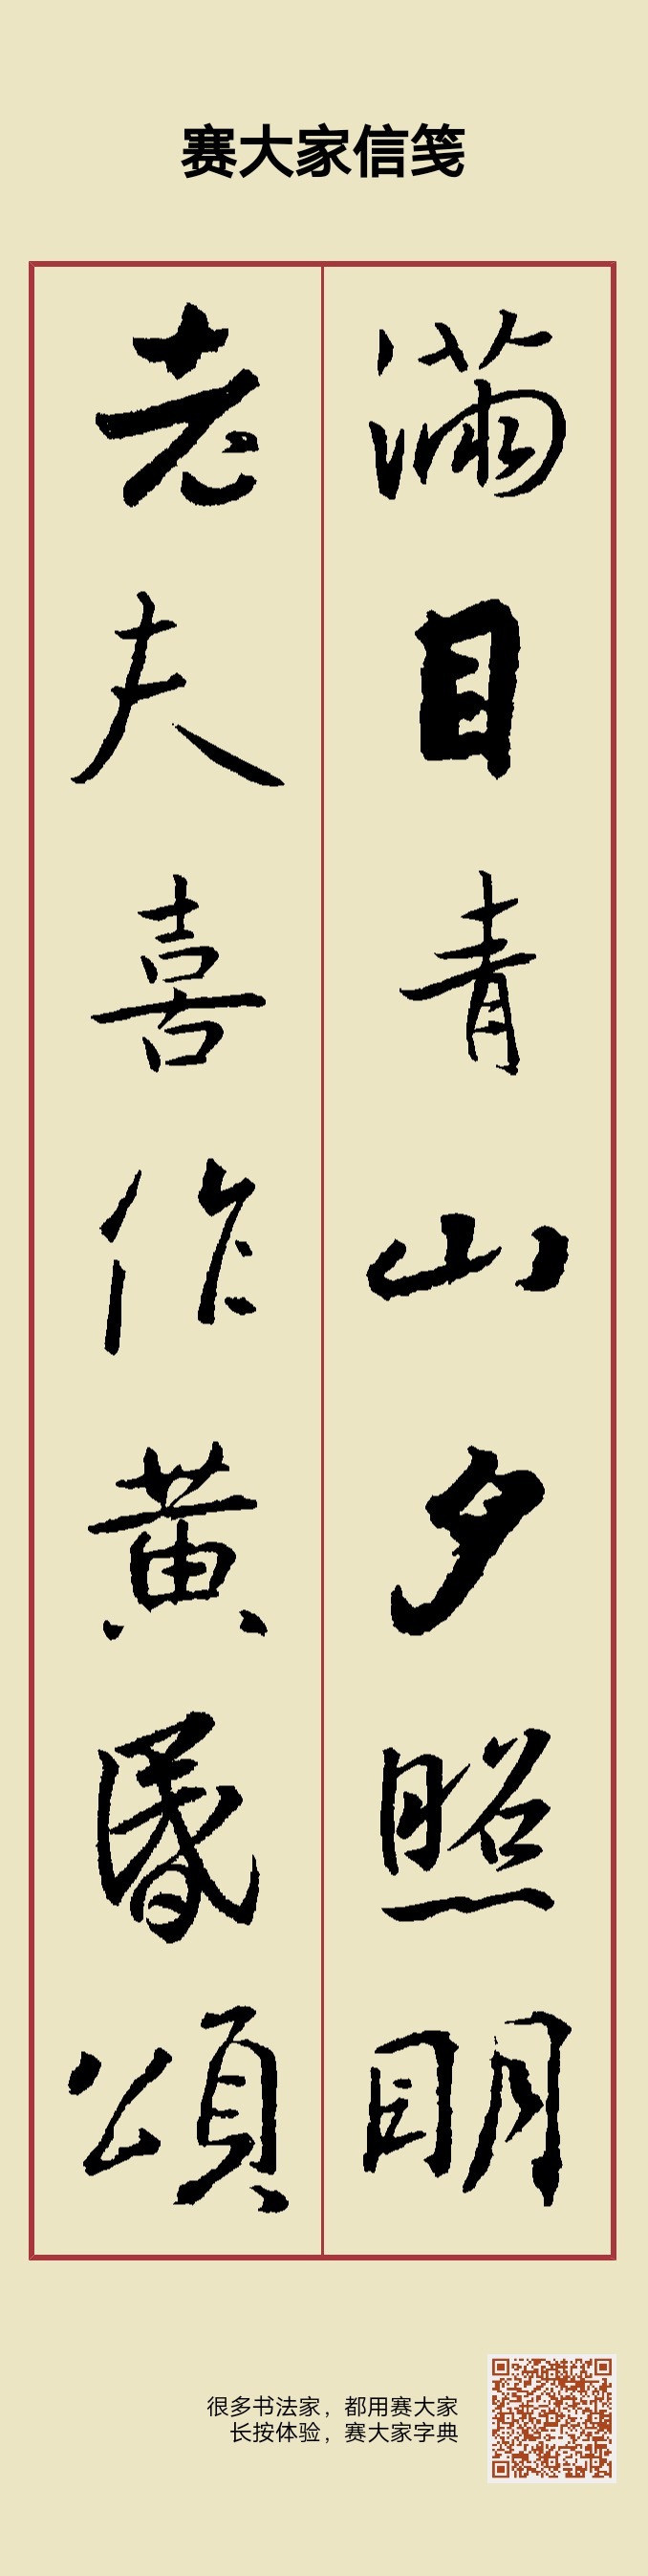 赛大家信笺
满目青山夕照明
老夫喜作黄昏頌
很多书法家，都用赛大家
长按体验，赛大家字典